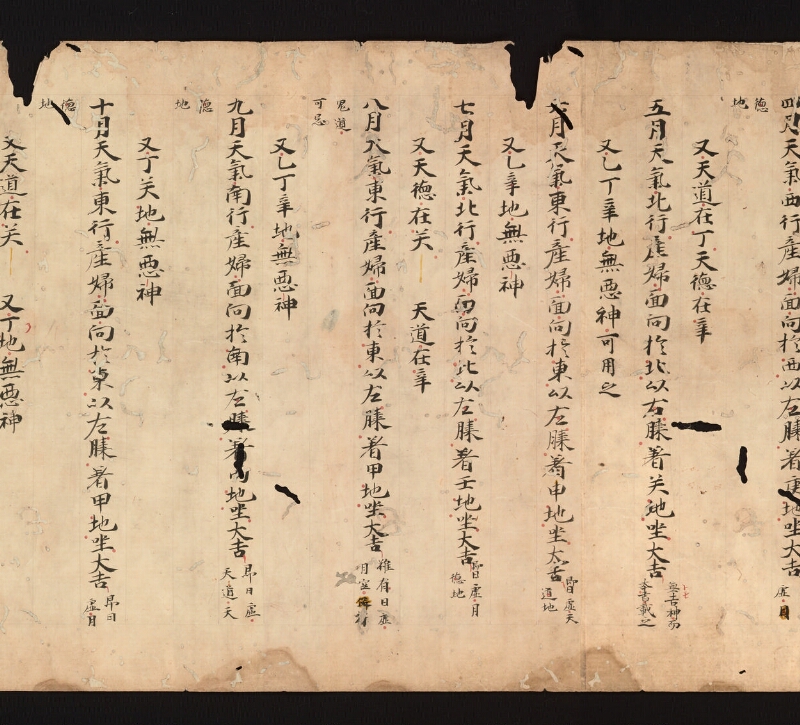 四月天氣西行産婦面向於西以左膝著庚地坐大吉 虚月
德地
又天道在丁天德在辛
五月天氣北行産婦面向於北以右膝著关地坐大吉
又乙丁辛地無惡神可用之
六月天氣東行産婦面向於東以左膝著申地坐大吉 昴日虚天道地
又乙辛地無惡神
七月天氣北行産婦面向於北以左膝著壬地坐大吉 昴日虚月德地
又天德在关 天道在辛
八月天氣東行産婦面向於東以左膝著甲地坐大吉
鬼道可忌
又乙丁辛地無惡神
九月天氣南行産婦面向於南以左膝著丙地坐大吉 昴日虚天道天
德地
又丁关地無惡神
十月天氣東行産婦面向於東以左膝著甲地坐大吉 昴日虚月
德地
又天道在关 又丁地無惡神